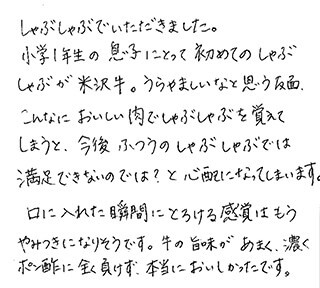 しゃぶしゃぶでいただきました。
小学1年生の息子にとって初めてのしゃぶ
しゃぶが米沢牛。うらやましいなと思う反面、
こんなにおいしい肉でしゃぶしゃぶを覚えて
しまうと、今後ふつうのしゃぶしゃぶでは
満足できないのでは?と心配になってしまいます。
口に入れた瞬間にとろける感覚はもう
やみつきになりそうです。牛の旨味があまく、濃く
ポン酢に全く負けず、本当においしかったです。